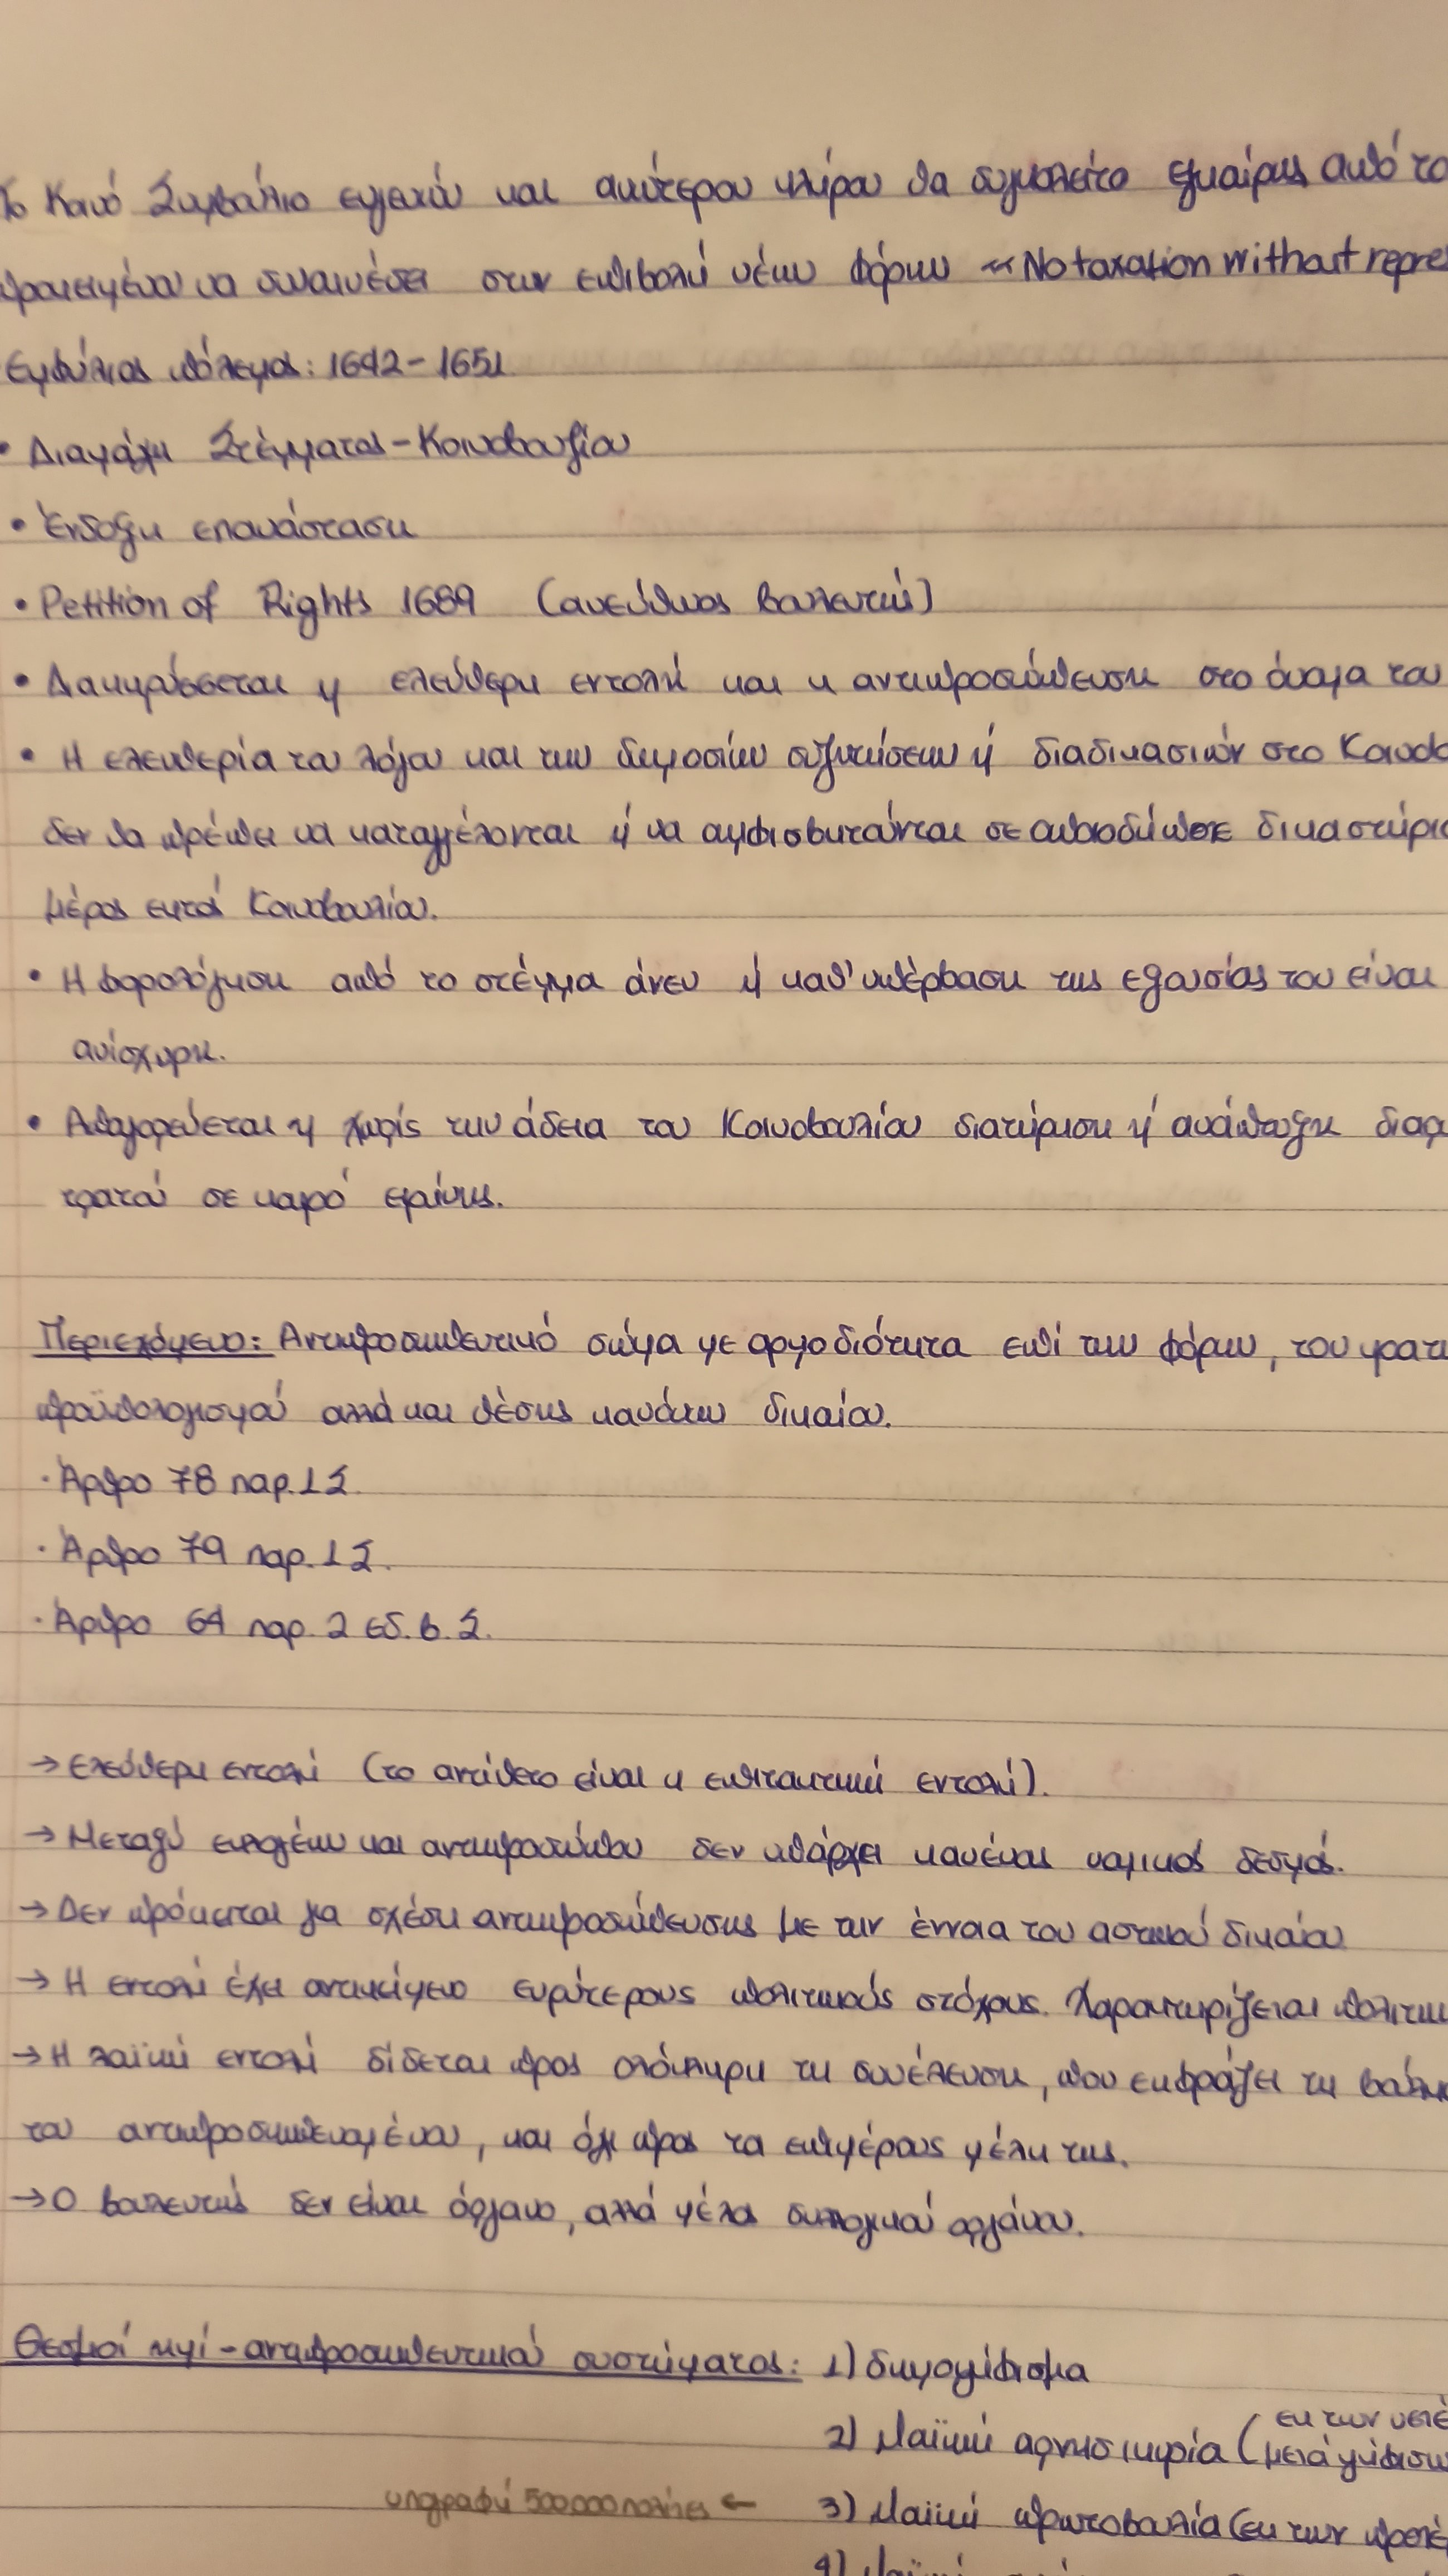 Το Κοινό Συμβούλιο ευγενών και ανώτερου κλήρου θα συγκαλείτο εγκαίρως από το
προκειμένου να συναινέσει στην επιβολή νέων φόρων «No taxation without repre
Εμφύλιος πόλεμος: 1642-1651
• Διαμάχη Στέμματος-Κοινοβουλίου
• Ένδοξη επανάσταση
• Petition of Rights 1689 (ανεύθυνος βουλευτής)
• Διακηρύσσεται η ελεύθερη εντολή και η αντιπροσώπευση στο όνομα του
• Η ελευθερία του λόγου και των δημοσίων συζητήσεων ή διαδικασιών στο Κοινοβ
δεν θα πρέπει να καταγγέλονται ή να αμφισβητούνται σε οποιοδήποτε δικαστήριο
μέρος εκτός Κοινοβουλίου.
• Η φορολόγηση από το στέμμα άνευ ή καθ' υπέρβαση της εξουσίας του είναι
ανίσχυρη.
• Απαγορεύεται η χωρίς την άδεια του Κοινοβουλίου διατήρηση ή ανάπτυξη διαρ
τρατού σε καιρό ειρήνης.
Περιεχόμενο: Αντιπροσωπευτικό σώμα με αρμοδιότητα επί των φόρων, του κρατι
προϋπολογισμού αλλά και θέσης κανόνων δικαίου.
· Άρθρο 78 παρ. 1 Σ.
· Άρθρο 79 παρ. 1 Σ.
· Άρθρο 64 παρ. 2 εδ. β. Σ.
→ Ελεύθερη εντολή (το αντίθετο είναι η επιτακτική εντολή).
→ Μεταξύ εκλογέων και αντιπροσώπου δεν υπάρχει κανένας νομικός δεσμός.
→ Δεν πρόκειται για σχέση αντιπροσώπευσης με την έννοια του αστικού δικαίου
→ Η εντολή έχει αντικείμενο ευρύτερους πολιτικούς στόχους. Χαρακτηρίζεται πολιτικ
→ Η λαϊκή εντολή δίδεται προς ολόκληρη τη συνέλευση, που εκφράζει τη βούλη
του αντιπροσωπευομένου, και όχι προς τα επιμέρους μέλη της.
→ Ο βουλευτής δεν είναι όργανο, αλλά μέλος συλλογικού οργάνου.
Θεσμοί ημί-αντιπροσωπευτικού συστήματος: 1) δημοψήφισμα
2) Λαϊκή αρνησικυρία (εκ των υστέ
μεταψήφιση
υπογραφή 500000 πολίτες ← 3) Λαϊκή πρωτοβουλία (εκ των προτέ
4) Λαϊκή